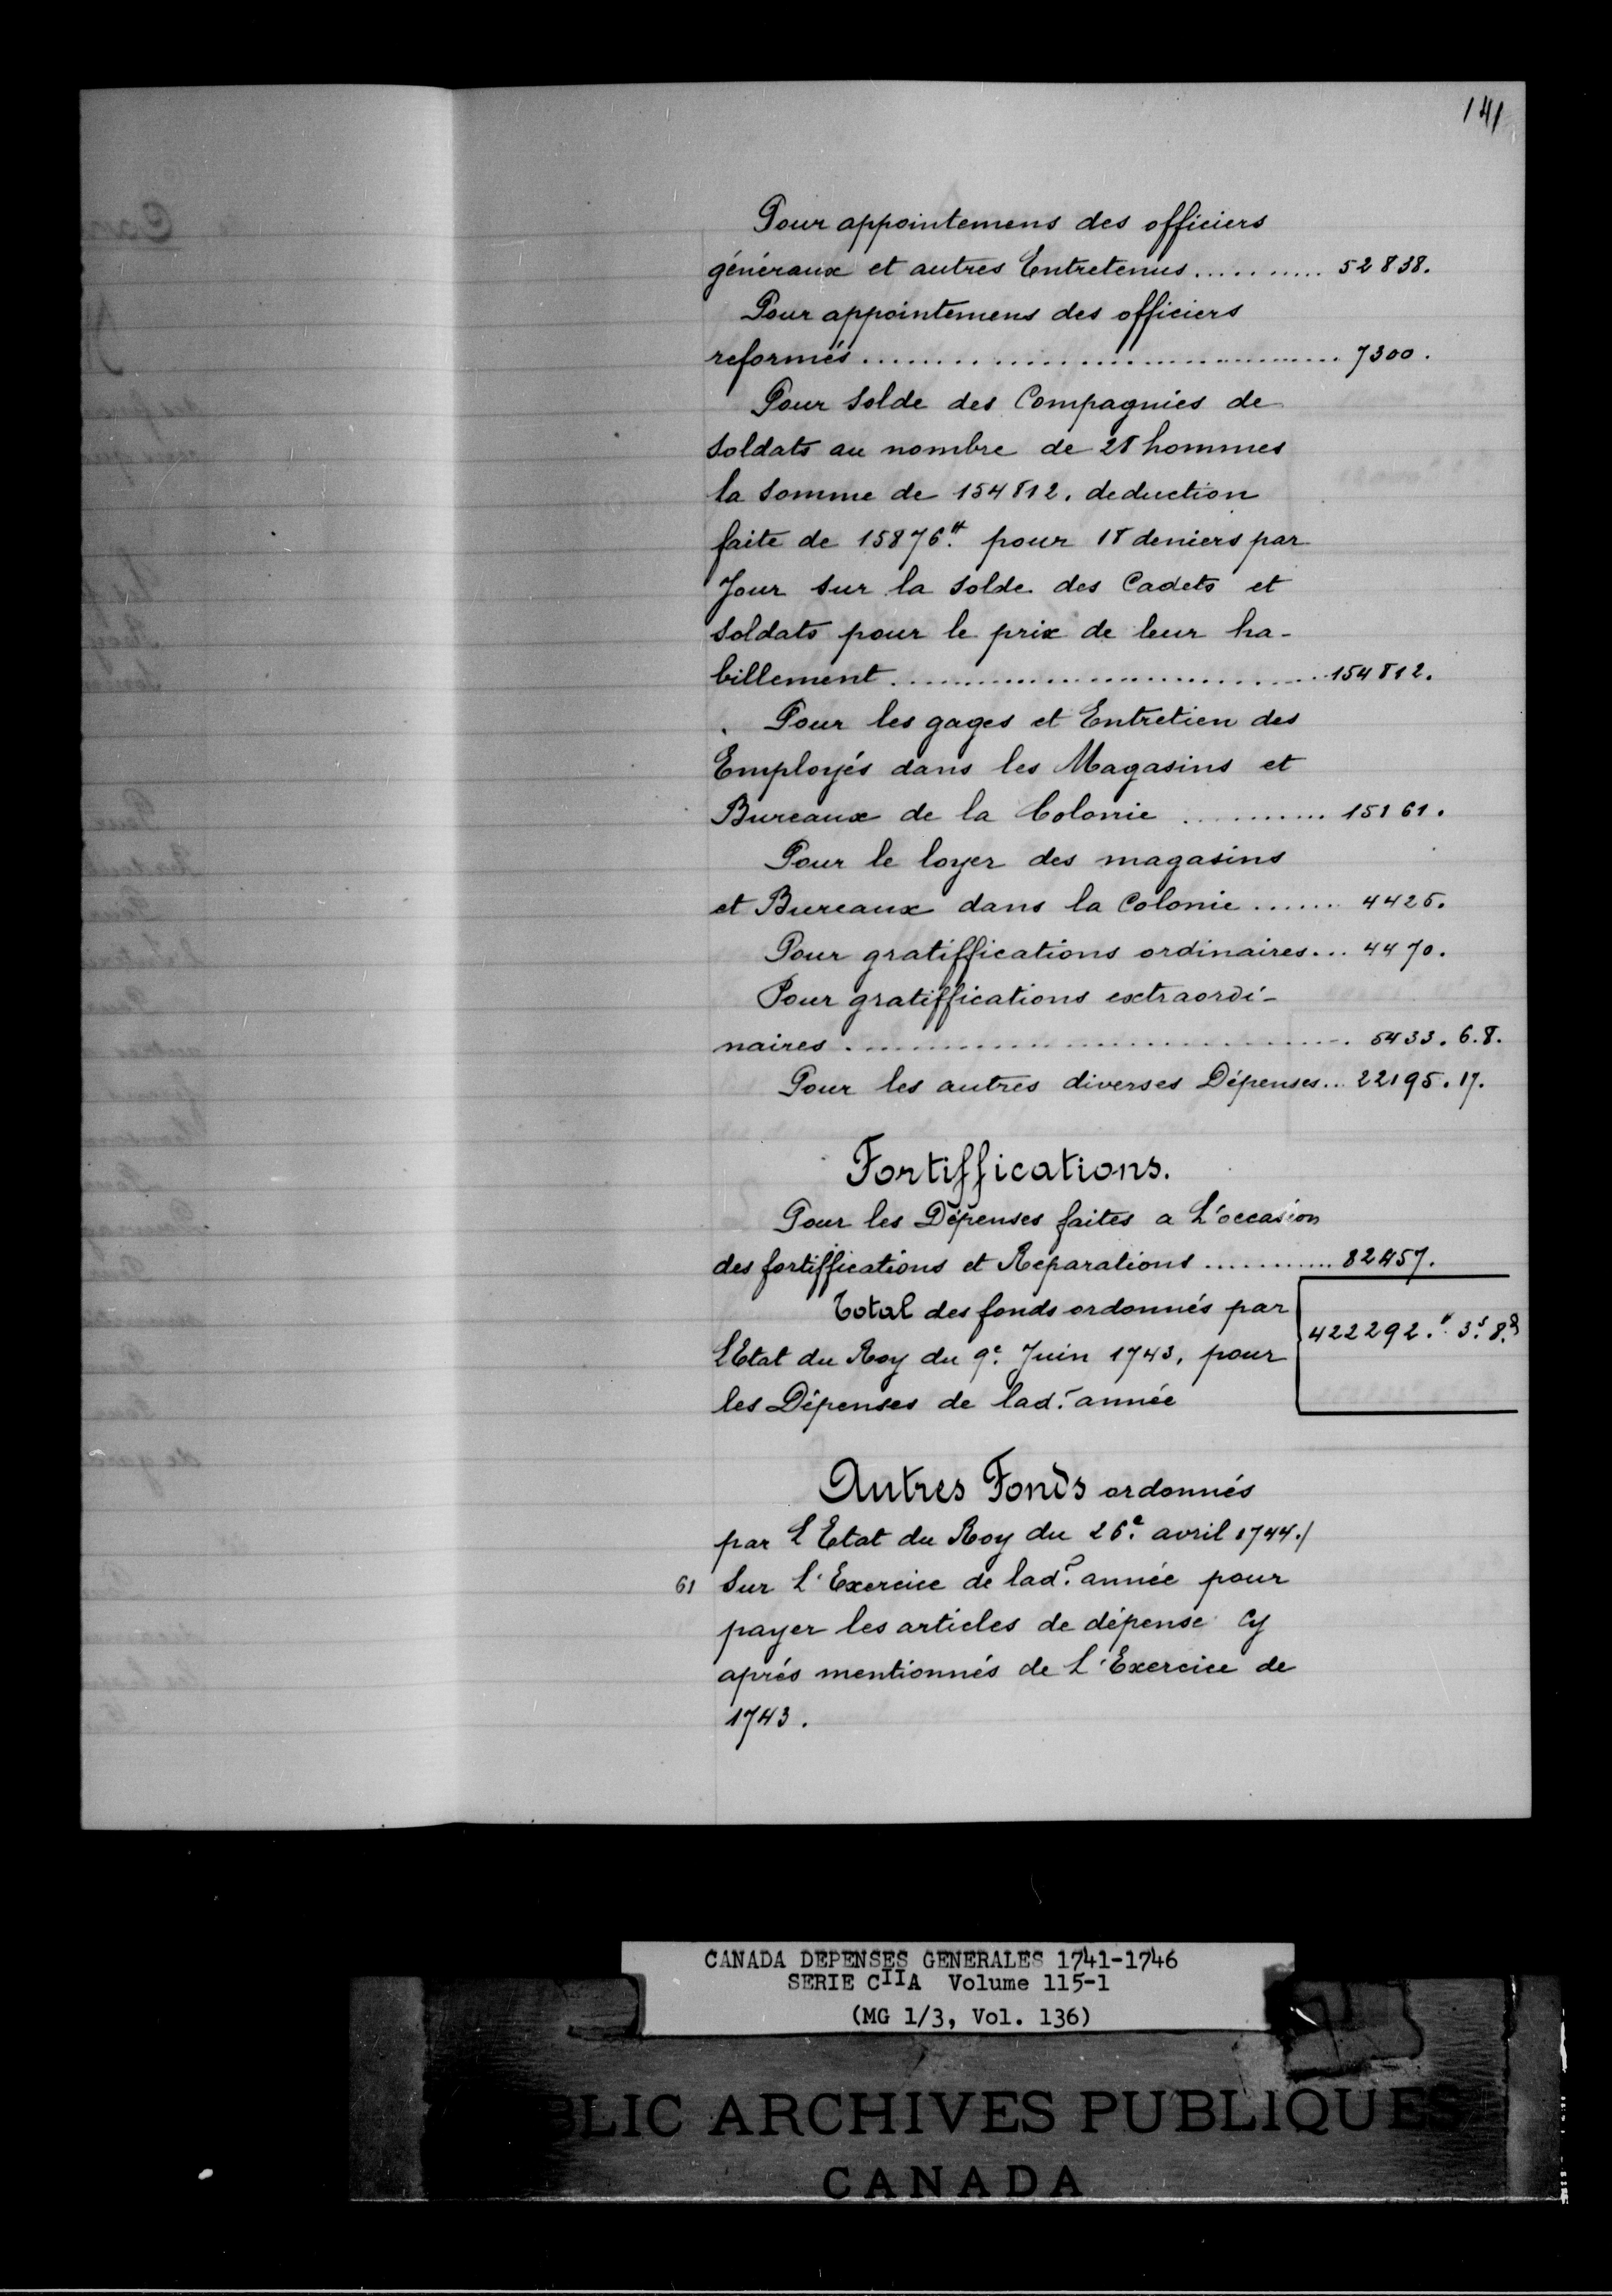 141
Pour appointemens des officiers
généraux et autres Entretenus........... 52838.
Pour appointemens des officiers
reformés........................................ 7300.
Pour Solde des Compagnies de
Soldats au nombre de 28 hommes
la Somme de 154812. deduction
faite de 15876.# pour 18 deniers par
Jour sur la Solde des Cadets et
Soldats pour le prix de leur ha-
billement.................................... 154812.
Pour les gages et Entretien des
Employés dans les Magasins et
Bureaux de la Colonie ............ 15861.
Pour le loyer des magasins
et Bureaux dans la Colonie ....... 4425.
Pour gratiffications ordinaires... 4470.
Pour gratiffications extraordi-
naires ....................................... 5433. 6. 8.
Pour les autres diverses Dépenses... 22195. 17.
Fortiffications.
Pour les Dépenses faites a L'occasion
des fortiffications et Reparations ............ 82457.
Total des fonds ordonnés par
422292.# 3.s 8.d
l'Etat du Roy du 9e. Juin 1743, pour
les Dépenses de lad. année
Autres Fonds ordonnés
par L'Etat du Roy du 26.e avril 1744./
61 Sur L'Exercice de lad.e année pour
payer les articles de dépense Cy
aprés mentionnés de L'Exercice de
1743.
CANADA DEPENSES GENERALES 1741-1746
SERIE CIIA Volume 115-1
(MG 1/3, Vol. 136)
BLIC ARCHIVES PUBLIQUES
CANADA